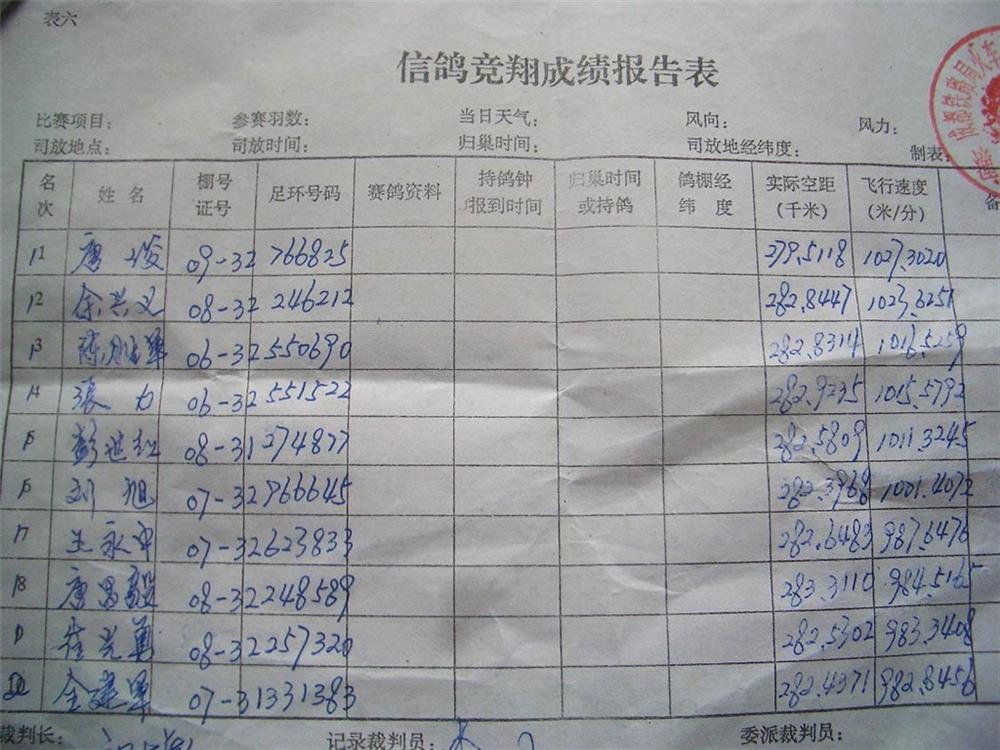 表六
信鸽竞翔成绩报告表
比赛项目: 参赛羽数: 当日天气: 风向: 风力:
司放地点: 司放时间: 归巢时间: 司放地经纬度: 制表:
名次 姓名 棚号证号 足环号码 赛鸽资料 持鸽钟报到时间 归巢时间或持鸽 鸽棚经纬度 实际空距(千米) 飞行速度(米/分) 备
11 唐俊 09-32 766825 279.5118 1027.3020
12 余兴义 08-32 246212 282.8447 1023.6251
13 陈 军 06-32 550690 282.8314 1016.5259
14 張力 06-32 551522 282.9235 1015.5792
15 彭 红 08-31 274877 282.5809 1011.3245
刘旭 07-32 966645 282.3968 1001.4072
17 王永中 07-32 623833 282.6483 987.6476
18 唐昌毅 08-32 248589 283.3110 984.5165
08-32 257320 282.5302 983.3408
金建军 07-31 331383 282.4371 982.8456
裁判长: 记录裁判员: 委派裁判员: